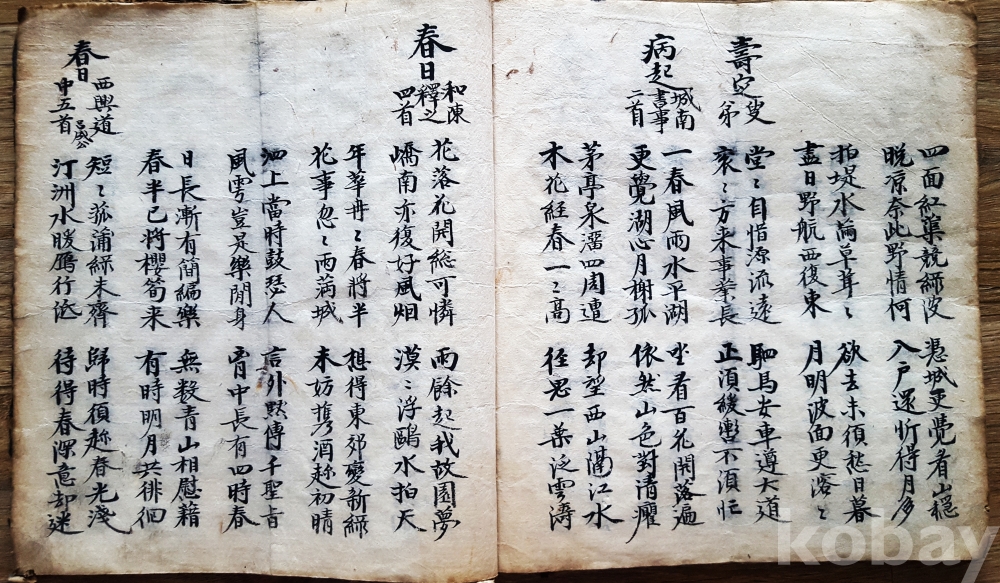 四面紅蕖競綠波
晚凉奈此野情何
憑城更覺看山穩
入戶還忻得月多
拍堤水滿草茸〻
盡日野航西復東
欲去未須愁日暮
月明波面更溶〻
壽定叟弟
堂〻自惜源流遠
袞〻方来事業長
駟馬安車遵大道
正須緩轡不須忙
病起城南書事二首
一春風雨水平湖
更覺湖心月榭孤
坐看百花開落遍
依然山色對清癯
茅亭氷溜四周遭
木花経春一〻高
却望西山隔江水
徑思一葉泛雲濤
春日和陳釋之四首
花落花開総可憐
嶠南亦復好風烟
雨餘起我故園夢
漠〻浮鷗水拍天
年華冉〻春將半
花事忽〻雨滿城
想得東郊變新綠
未妨携酒趂初晴
泗上當時鼓瑟人
風雩豈是樂閒身
言外默傳千聖旨
胷中長有四時春
日長漸有簡編樂
春半已將櫻筍来
無數青山相慰藉
有時明月共徘徊
春日西興道中五首 吕成公
短〻菰蒲綠未齊
汀洲水暖鴈行低
歸時須趂春光淺
待得春深意却迷
kobay